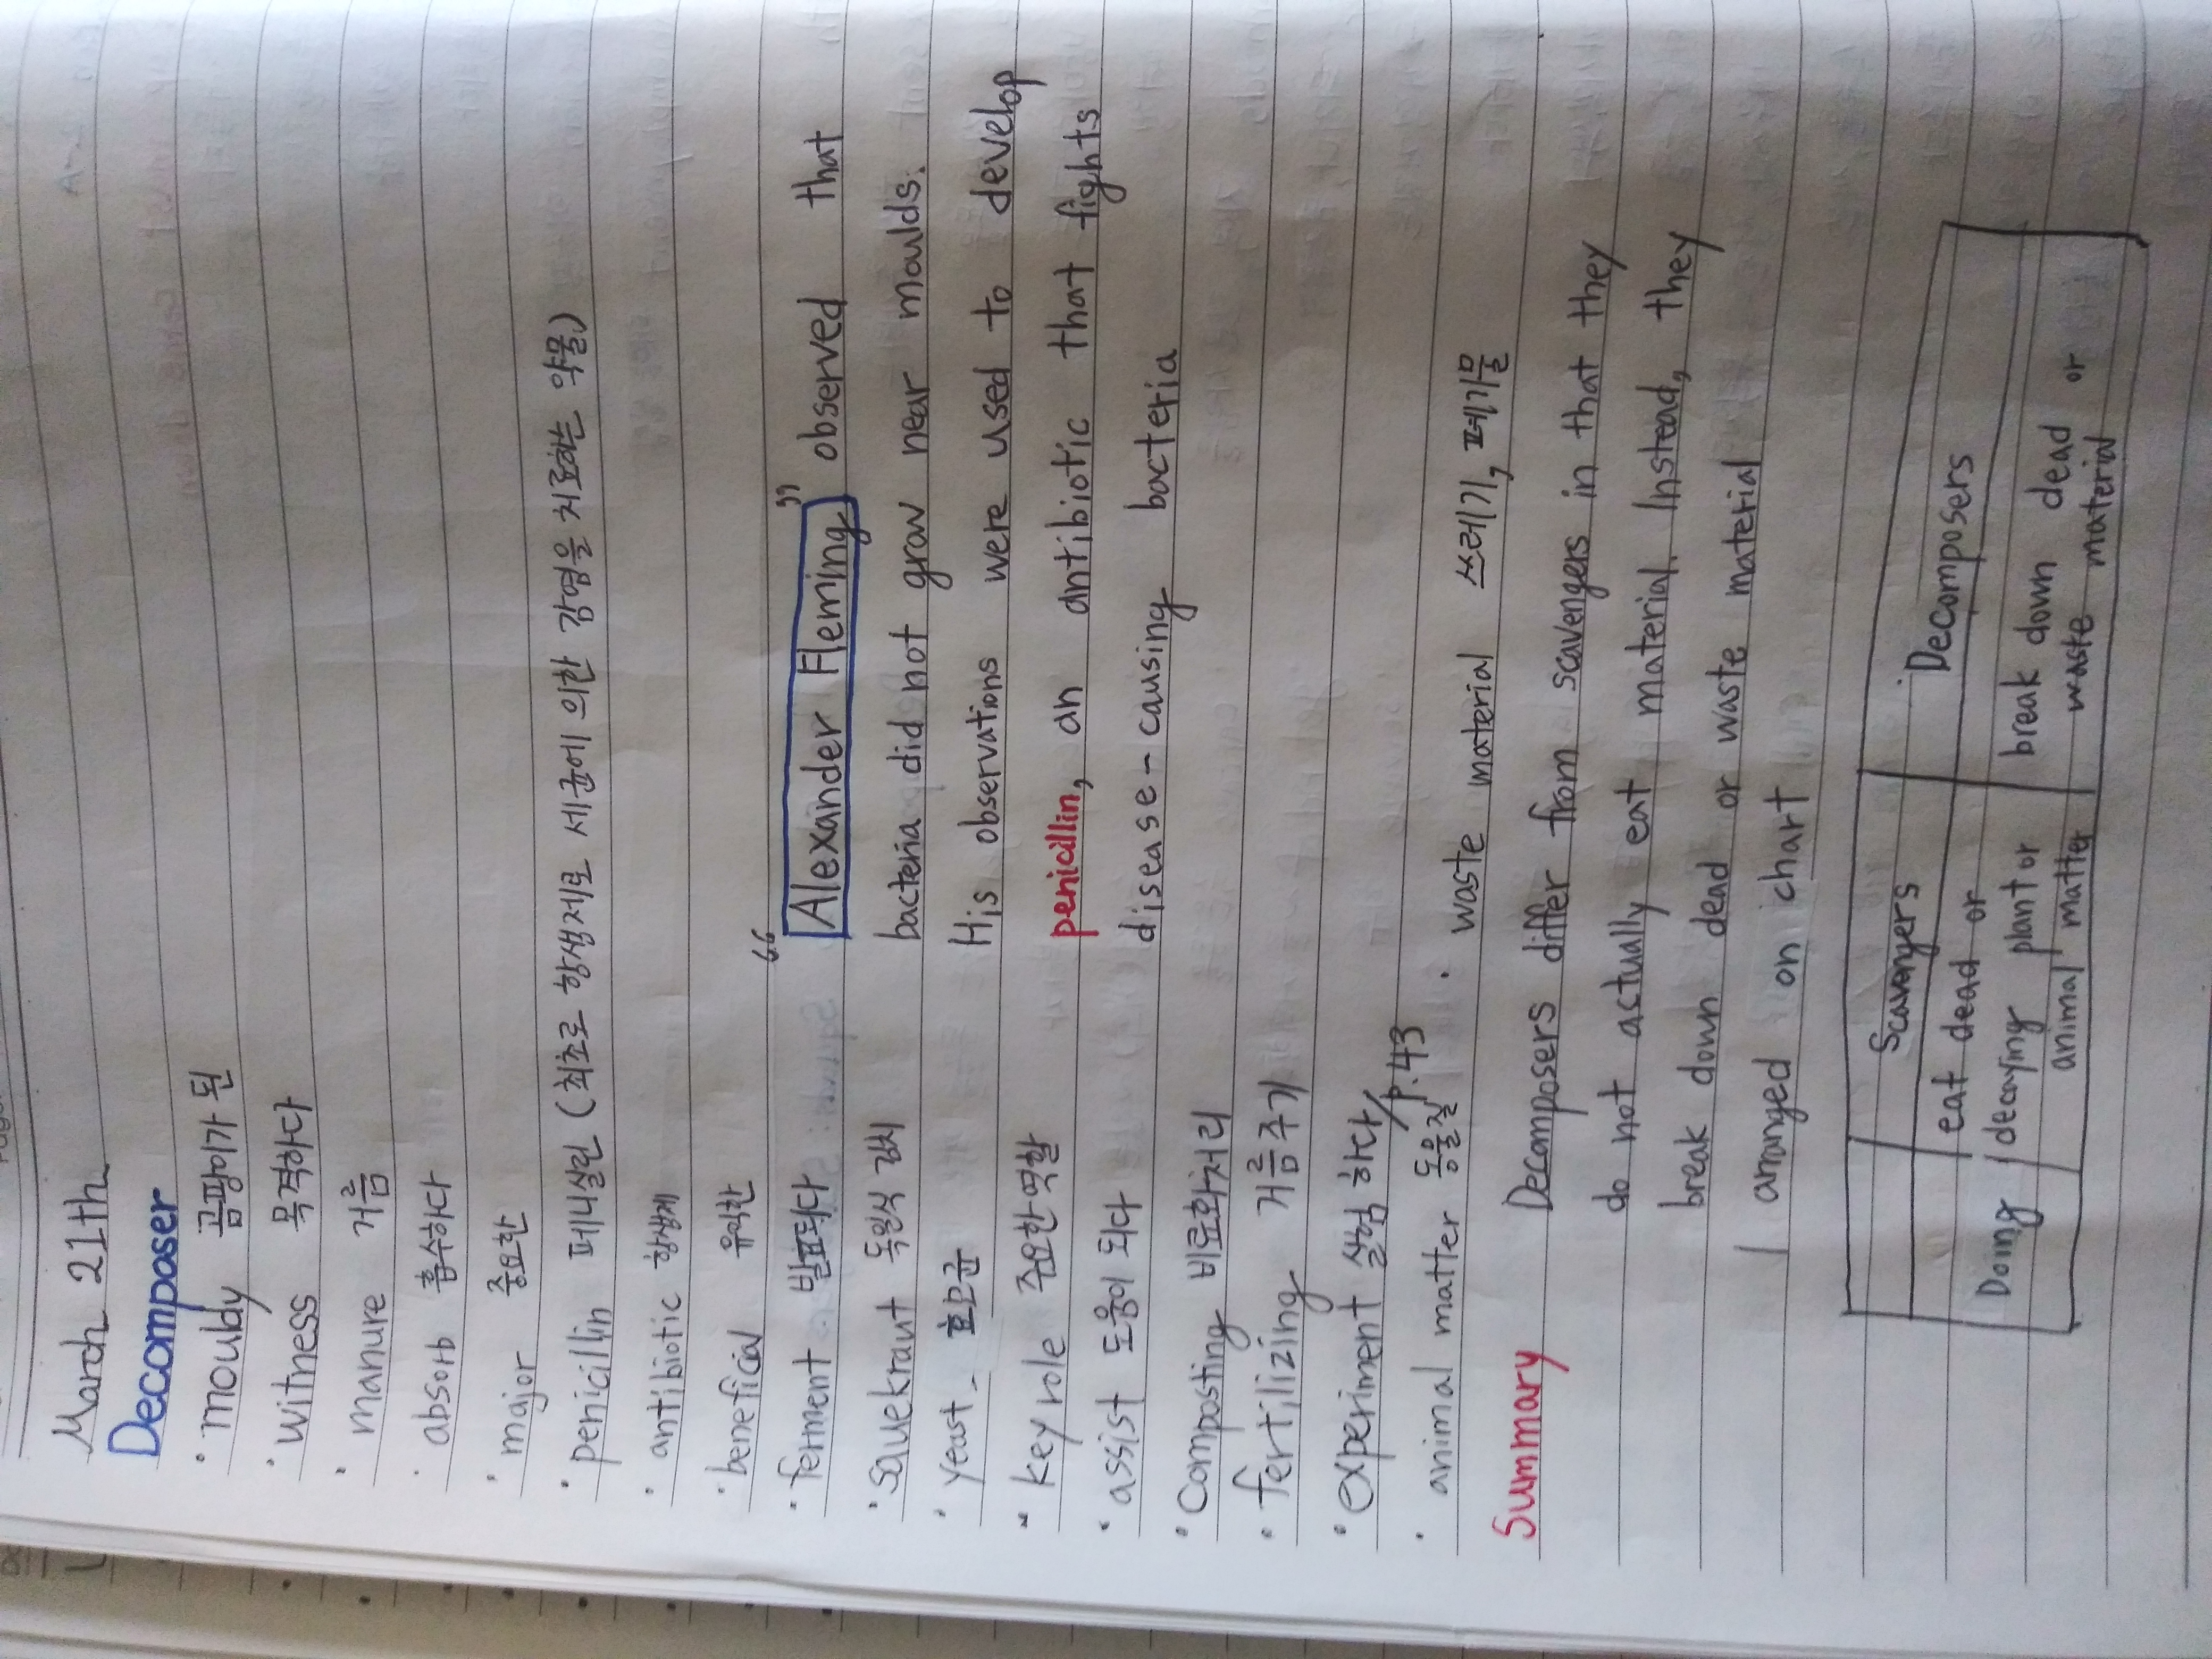 March 21th
Decomposer
· mouldy 곰팡이가 된
· witness 목격하다
· manure 거름
· absorb 흡수하다
· major 중요한
· penicillin 페니실린 (최초로 항생제로 세균에 의한 감염을 치료하는 약물)
· antibiotic 항생제
· beneficial 유익한
· ferment 발효되다
· sauekraut 독일식 김치
· yeast 효모균
· key role 주요한 역할
· assist 도움이 되다
· composting 비료화처리
· fertilizing 거름주기
· experiment 실험 하다/p.43
· animal matter 동물질 · waste material 쓰레기, 폐기물
“Alexander Fleming” observed that
bacteria did not grow near moulds.
His observations were used to develop
penicillin, an antibiotic that fights
disease-causing bacteria
Summary
Decomposers differ from scavengers in that they
do not actually eat material. Instead, they
break down dead or waste material
I arranged on chart
Scavengers Decomposers
Doing eat dead or decaying plant or animal matter
break down dead or waste material